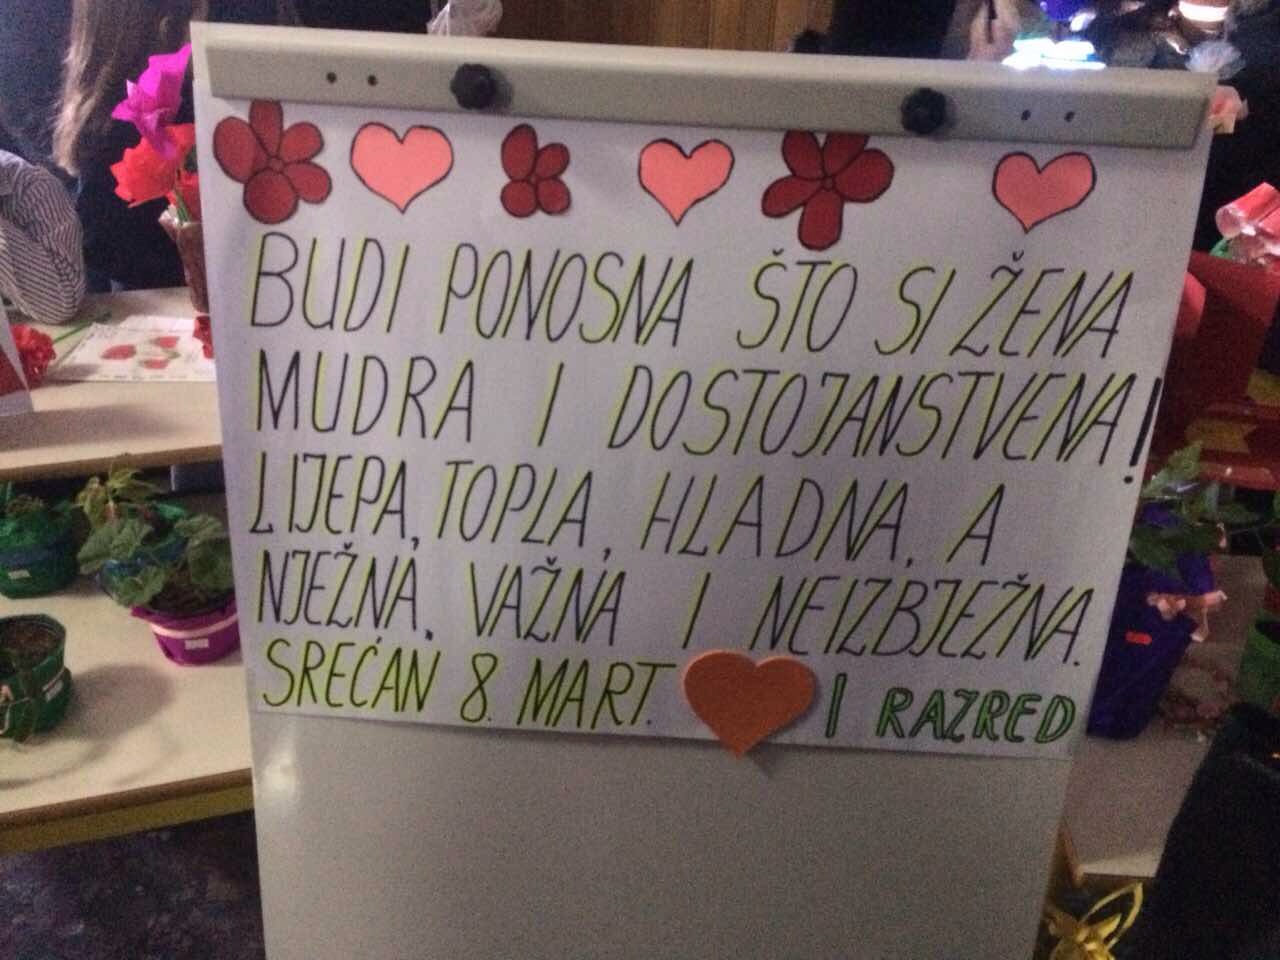 BUDI PONOSNA ŠTO SI ŽENA
MUDRA I DOSTOJANSTVENA!
LIJEPA, TOPLA, HLADNA, A
NJEŽNA, VAŽNA I NEIZBJEŽNA.
SREĆAN 8. MART. I RAZRED